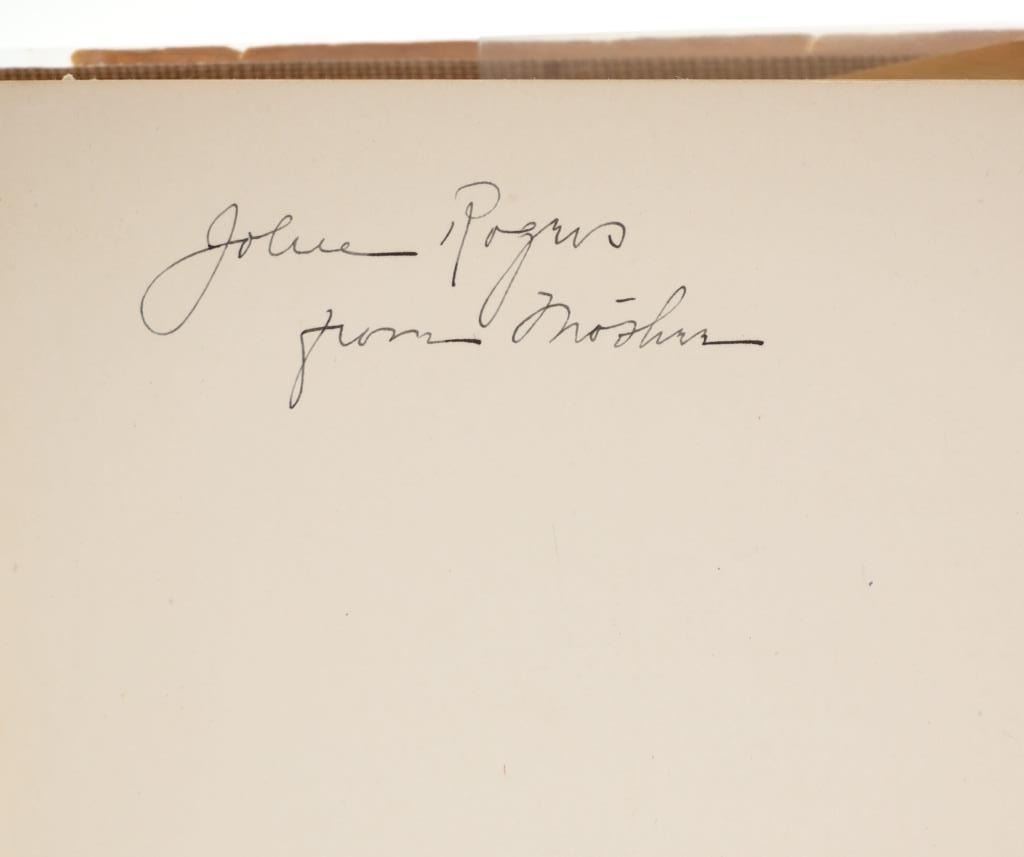 John Rogers
from Mother